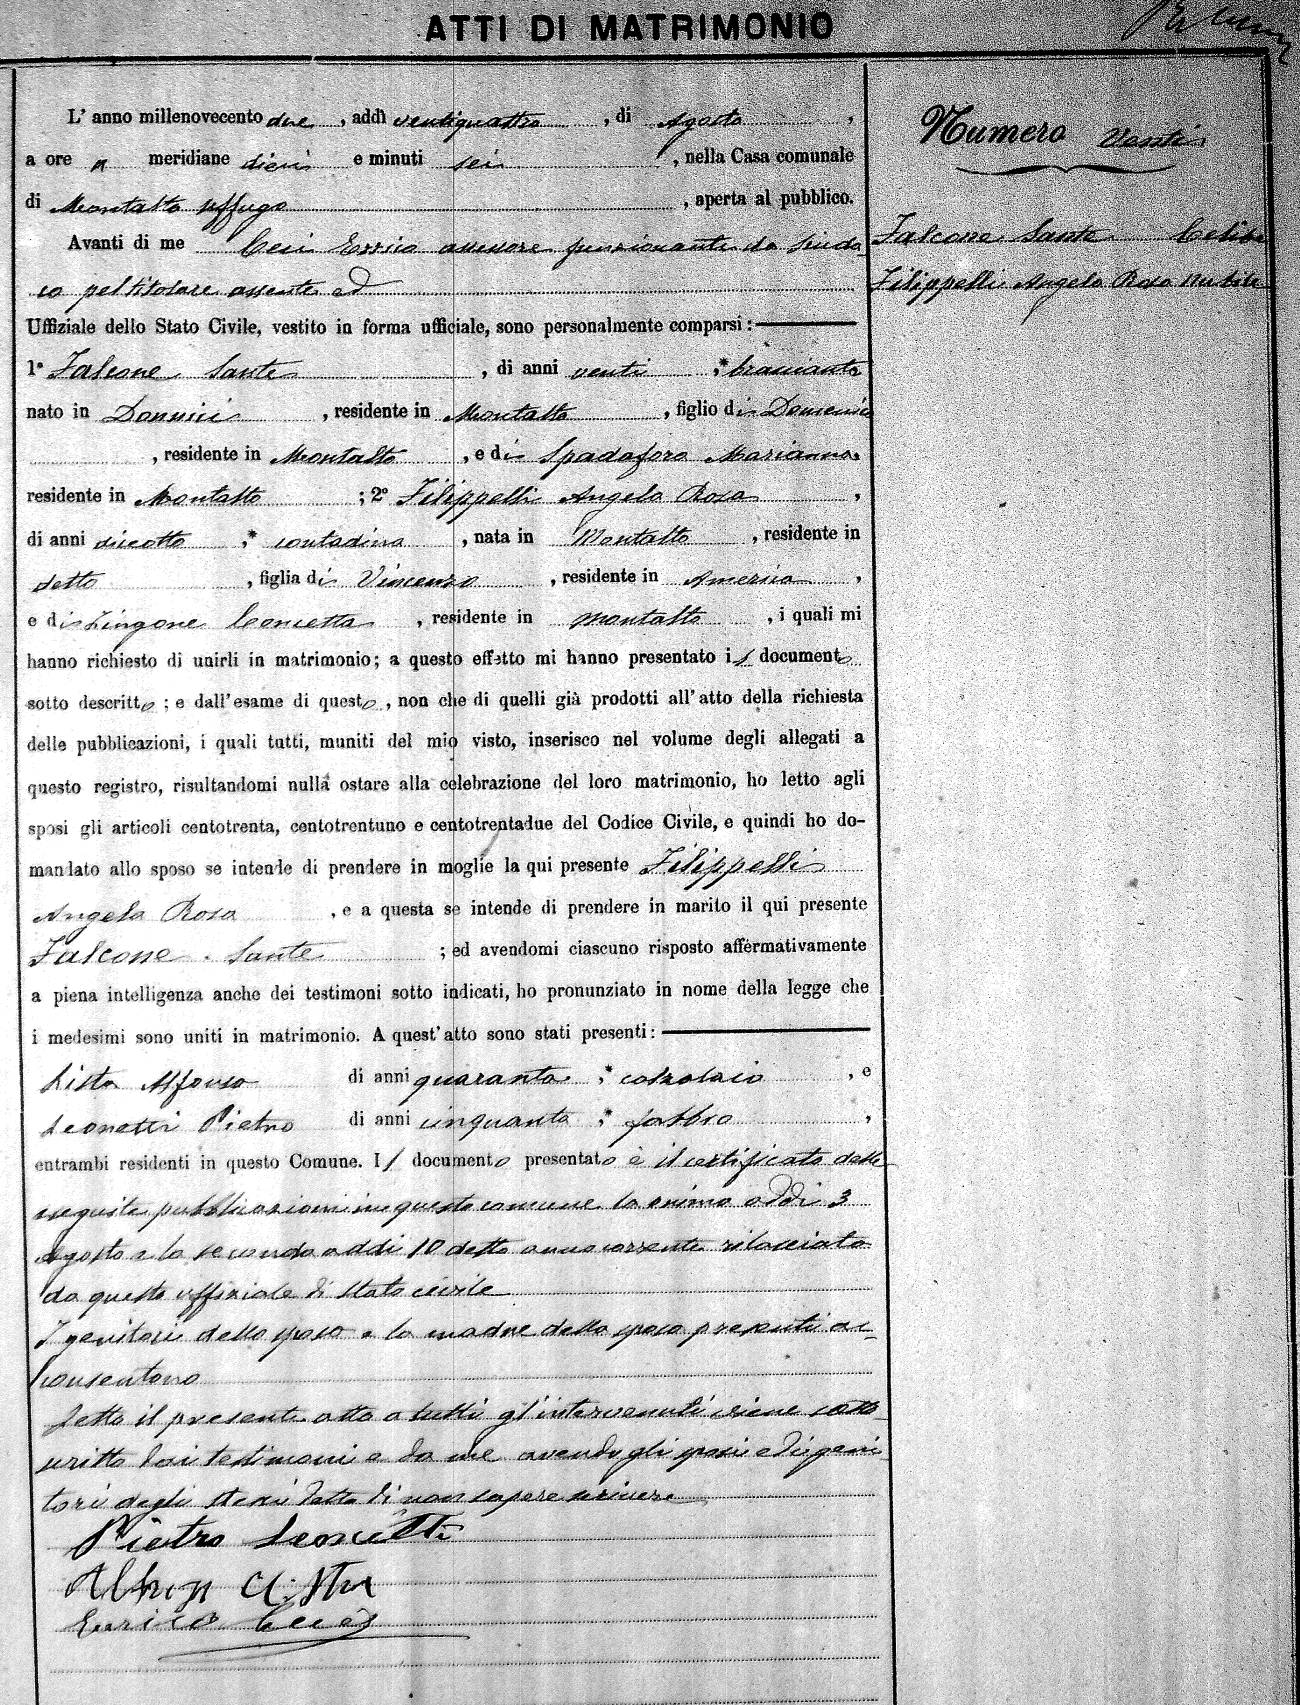 ATTI DI MATRIMONIO
Numero venti
Falcone Sante Celibe
Filippelli Angela Rosa nubile
L' anno millenovecento due, addì ventiquattro, di Agosto,
a ore a meridiane dieci e minuti sei, nella Casa comunale
di Montalto Uffugo, aperta al pubblico.
Avanti di me Ceci Errico assessore funzionante da Sinda-
co pel titolare assente ed
Uffiziale dello Stato Civile, vestito in forma ufficiale, sono personalmente comparsi:
1º Falcone Sante, di anni venti, * bracciante
nato in Donnici, residente in Montalto, figlio di Domenico
, residente in Montalto, e di Spadafora Marianna,
residente in Montalto; 2º Filippelli Angela Rosa,
di anni diciotto, * contadina, nata in Montalto, residente in
detto, figlia di Vincenzo, residente in America,
e di Zingone Concetta, residente in Montalto, i quali mi
hanno richiesto di unirli in matrimonio; a questo effetto mi hanno presentato il documento
sotto descritto; e dall'esame di questo, non che di quelli già prodotti all'atto della richiesta
delle pubblicazioni, i quali tutti, muniti del mio visto, inserisco nel volume degli allegati a
questo registro, risultandomi nulla ostare alla celebrazione del loro matrimonio, ho letto agli
sposi gli articoli centotrenta, centotrentuno e centotrentadue del Codice Civile, e quindi ho do-
mandato allo sposo se intende di prendere in moglie la qui presente Filippelli
Angela Rosa, e a questa se intende di prendere in marito il qui presente
Falcone Sante; ed avendomi ciascuno risposto affermativamente
a piena intelligenza anche dei testimoni sotto indicati, ho pronunziato in nome della legge che
i medesimi sono uniti in matrimonio. A quest'atto sono stati presenti:
Lista Alfonso di anni quaranta, * calzolaio, e
Leonetti Pietro di anni cinquanta, * fabbro,
entrambi residenti in questo Comune. Il documento presentato è il certificato delle
eseguite pubblicazioni in questo comune la prima addì 3
agosto e la seconda addì 10 detto anno corrente rilasciato
da questo uffiziale di stato civile
I genitori dello sposo e la madre della sposa presenti ac-
consentono
Letto il presente atto a tutti gl'intervenuti viene sotto-
scritto dai testimoni e da me avendo gli sposi ed i geni-
tori degli stessi detto di non sapere scrivere
Pietro Leonetti
Alfonso Lista
Enrico Ceci